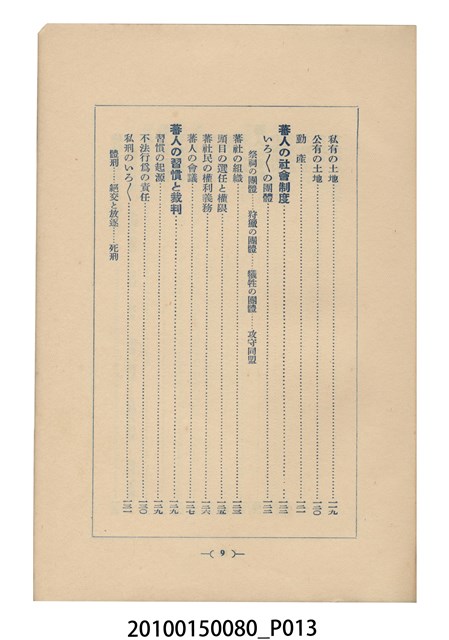 私有の土地……一一九
公有の土地……一二〇
動産……一二一
蕃人の社會制度……一二二
いろ〱の團體……一二二
祭祠の團體……狩獵の團體……犧牲の團體……攻守同盟
蕃社の組織……一二三
頭目の選任と權限……一二五
蕃社民の權利義務……一二六
蕃人の會議……一二七
蕃人の習慣と裁判……一二九
習慣の起源……一二九
不法行爲の責任……一三〇
私刑のいろ〱……一三一
體刑……絕交と放逐……死刑
9
20100150080_P013